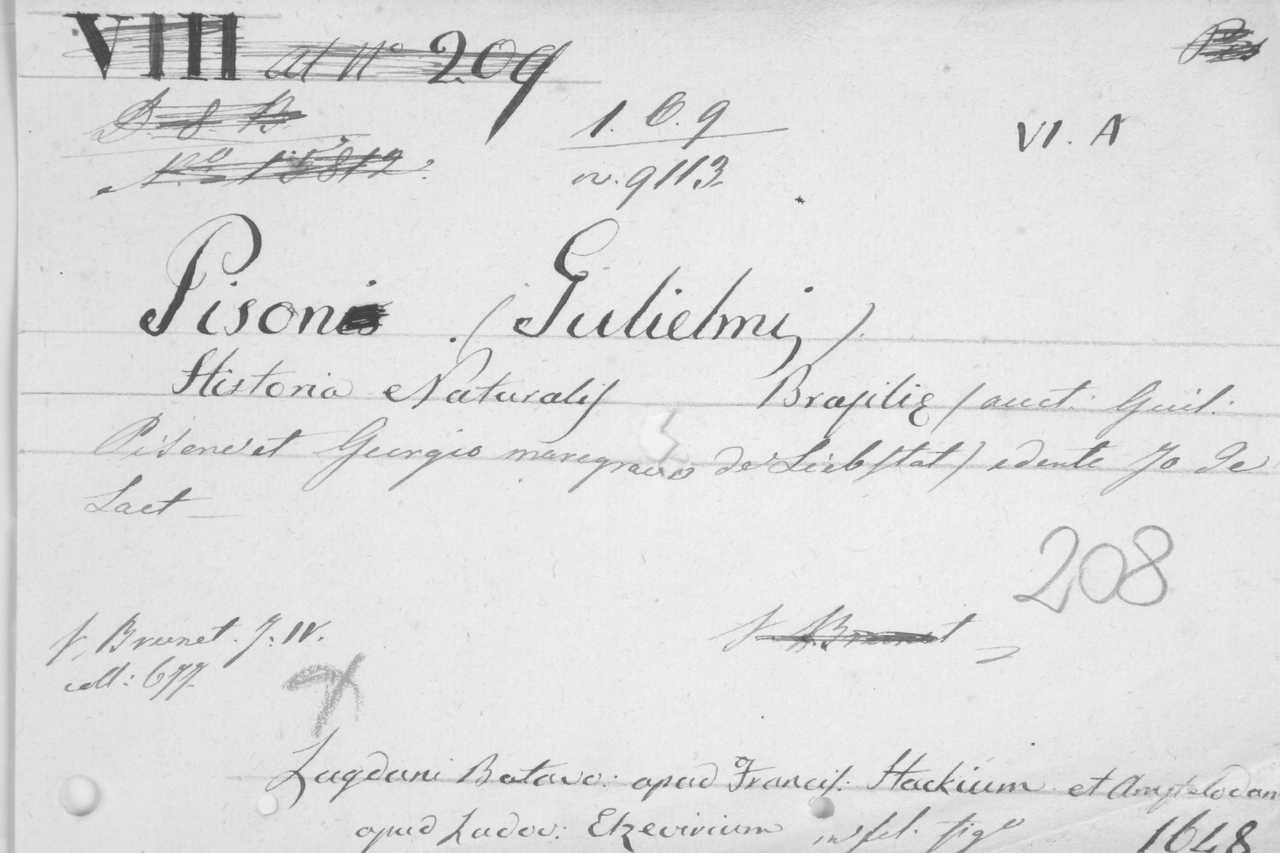 VIII at N° 209
D. 8. B.
N.° 15812.
1. 6. 9
n. 9113.
VI. A
Pison (Gulielmi)
Historia Naturalis Brasiliæ (auct. Guil.
Pisone et Georgio maregravio de Liebstat) edente Jo de
Laet
208
V. Brunet. T. IV.
col: 677.
V. Brunet
Lugduni Batavo: apud Francis. Hackium et Amstelodam
apud Ludov: Elzevirium in fol. fig.
1648